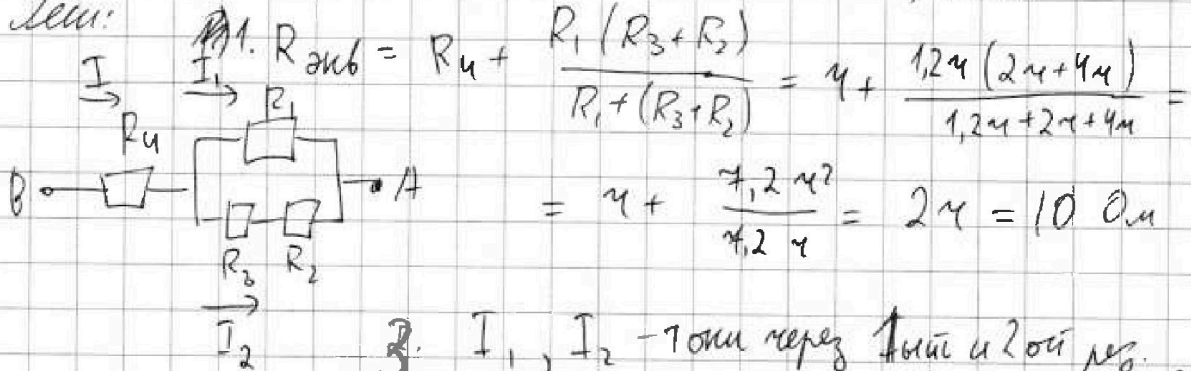 Реш:
1. Rэкв = R4 + R1(R3+R2) / R1+(R3+R2) = r + 1,2r(2r+4r) / 1,2r+2r+4r =
I I1
R1
R4
B A
= r + 7,2r² / 7,2r = 2r = 10 Ом
R3 R2
I2
2. I1, I2 - токи через 1ый и 2ой рез.